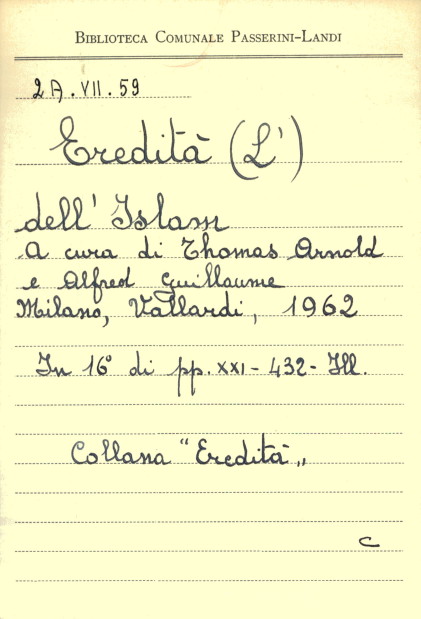 BIBLIOTECA COMUNALE PASSERINI-LANDI
2A.VII.59
Eredità (L')
dell'Islam
A cura di Thomas Arnold
e Alfred Guillaume
Milano, Vallardi, 1962
In 16° di pp. XXI - 432 - Ill.
Collana "Eredità„
C